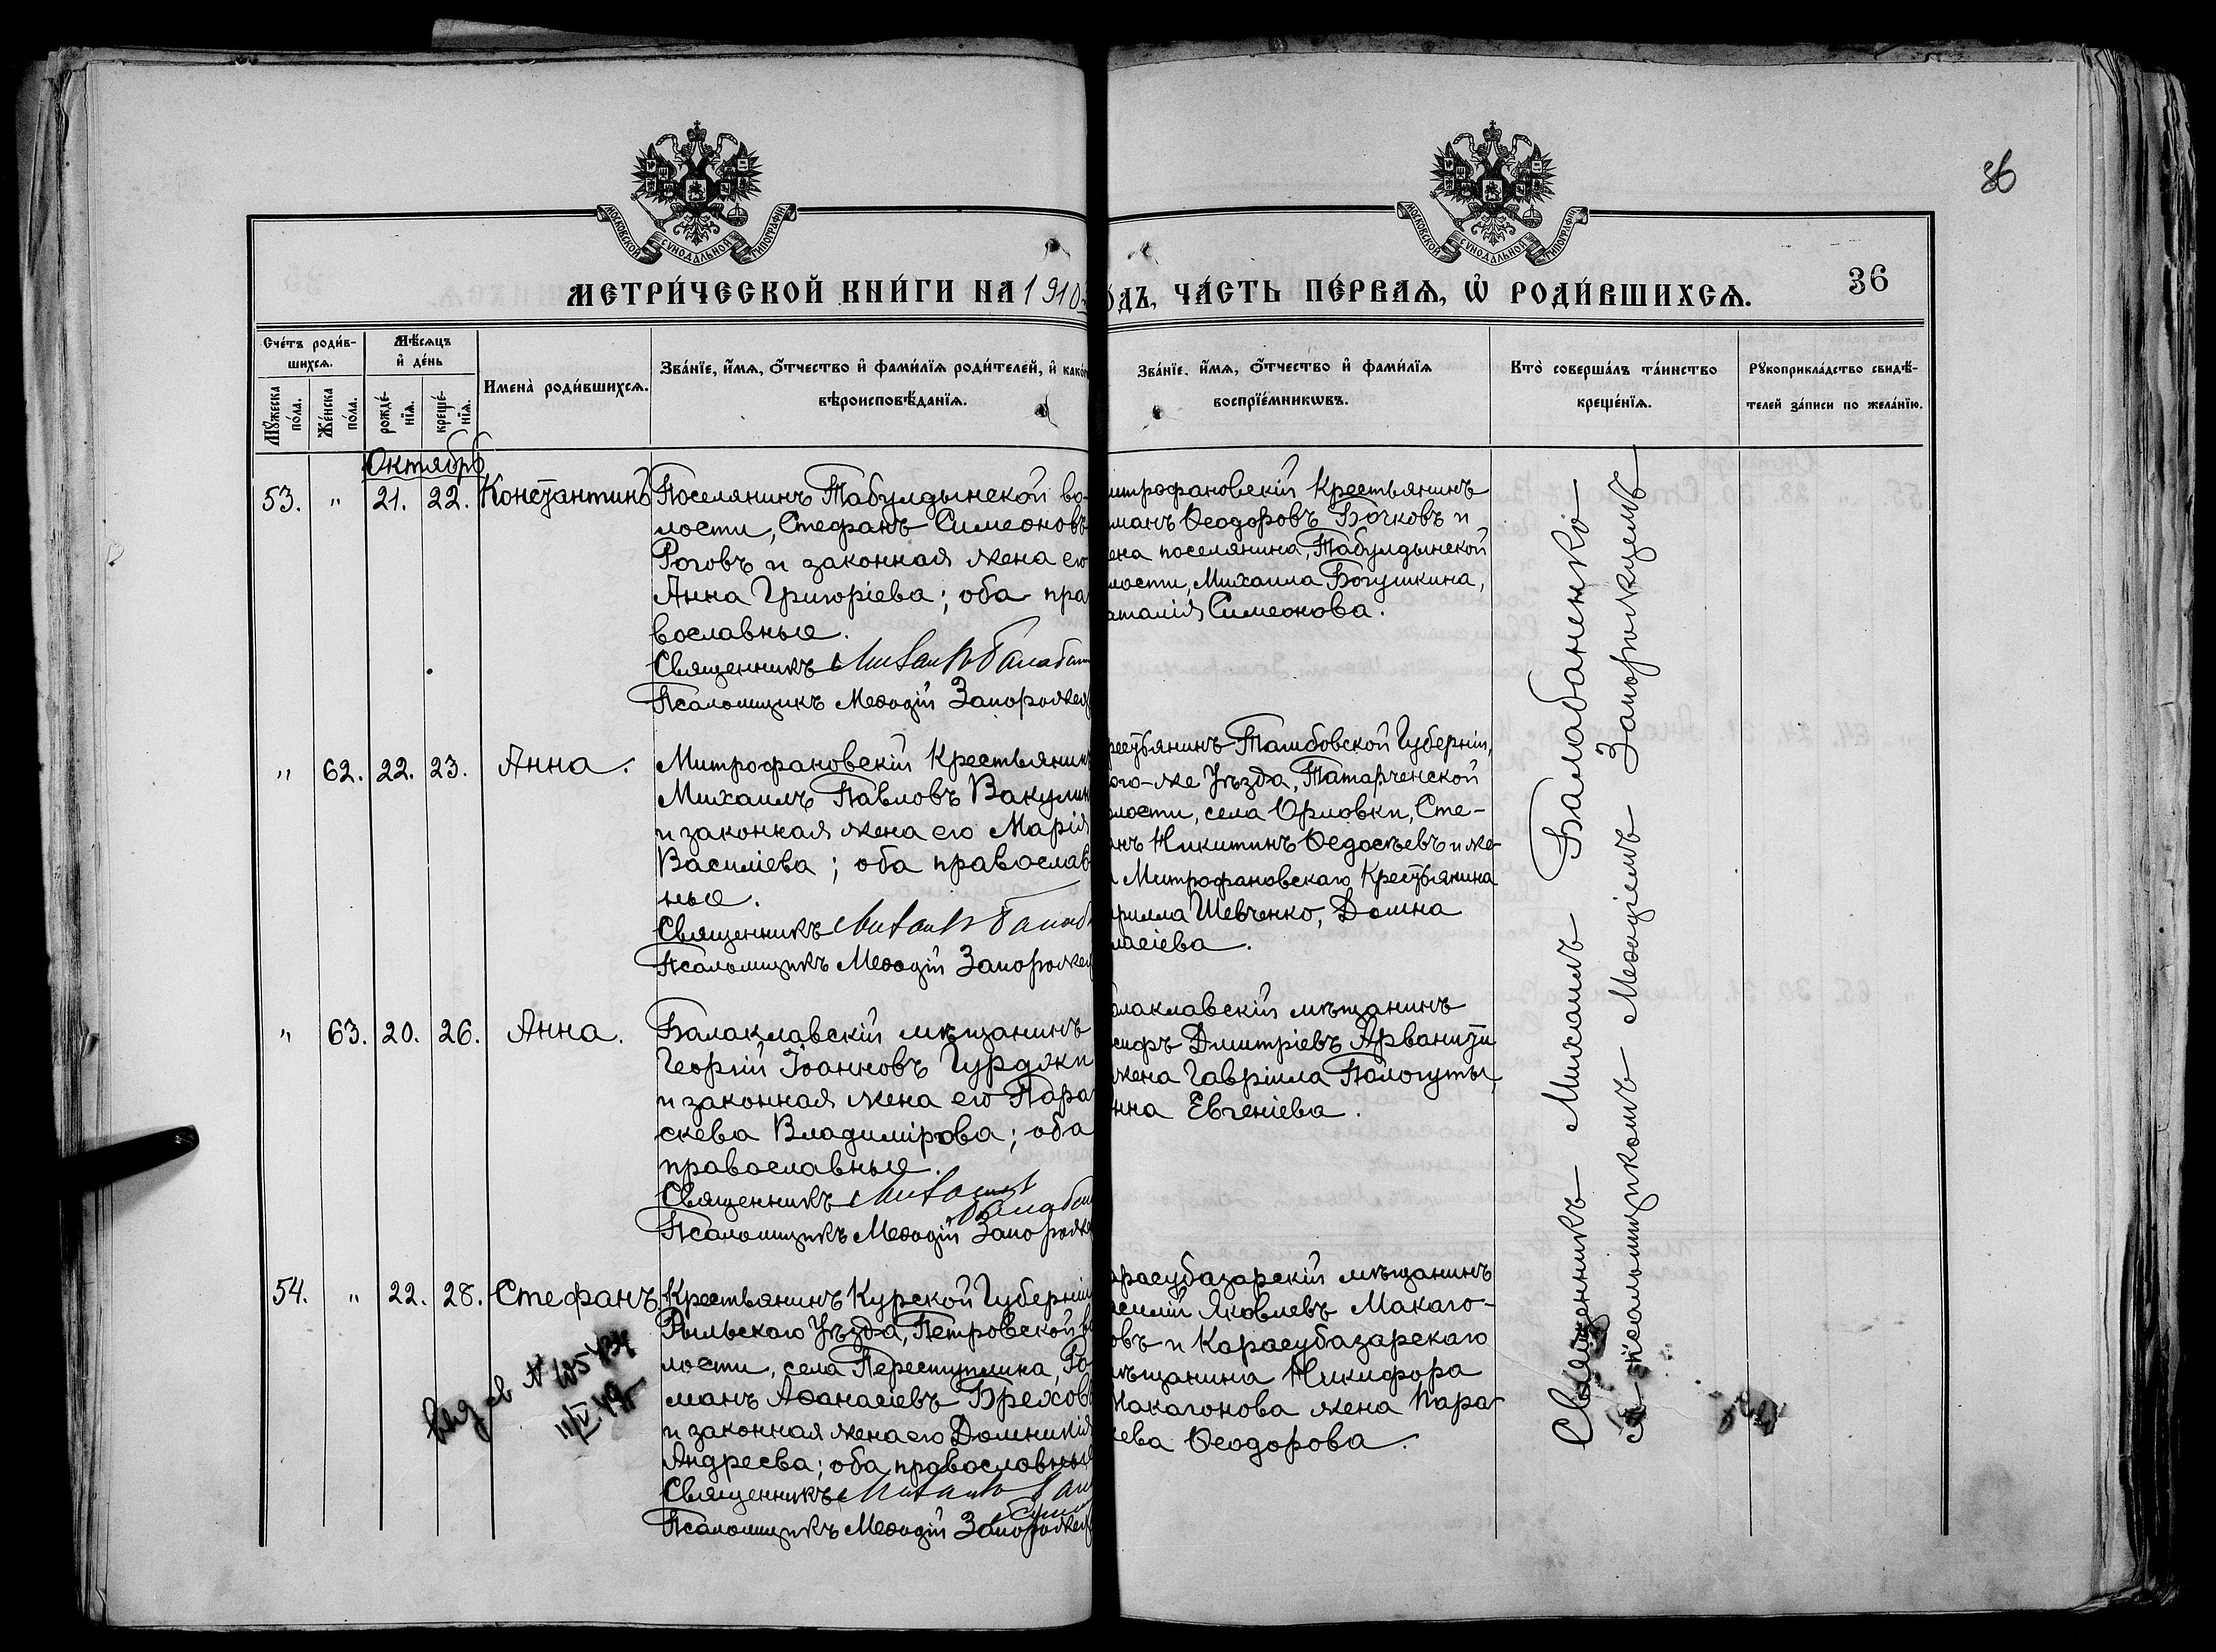 36
МОСКОВСКОЙ СУНОДАЛЬНОЙ ТИПОГРАФІИ
МОСКОВСКОЙ СУНОДАЛЬНОЙ ТИПОГРАФІИ
МЕТРИ́ЧЕСКОЙ КНИ́ГИ НА 1910
О́ДЪ, ЧА́СТЬ ПЕ́РВАѦ, Ѡ҆ РОДИ́ВШИХСѦ.
36
Сче́тъ роди́в-
шихсѧ.
Мꙋ́жеска
по́ла.
Же́нска
по́ла.
Мѣ́сѧцъ
и҆ де́нь
рожде́-
нїѧ.
креще́-
нїѧ.
Имена̀ роди́вшихсѧ.
Зва́нїе, и҆́мѧ, ѻ҆́тчество и҆ фами́лїѧ роди́телей, и҆ како́г
вѣроисповѣ́данїѧ.
Зва́нїе, и҆́мѧ, ѻ҆́тчество и҆ фами́лїѧ
воспрїе́мникѡвъ.
Кто̀ соверша́лъ та́инство
креще́нїѧ.
Рꙋкоприкла́дство свидѣ́-
телей за́писи по жела́нїю.
Октябрь
53. " 21. 22. Константинъ
Поселянинъ Табулдынской во-
лости, Стефанъ Симеоновъ
Роговъ и законная жена его
Анна Григоріева; оба пра
вославные.
Священникъ Михаилъ Балабан
Псаломщикъ Меѳодій Запорожец
итрофановскій Крестьянинъ
манъ Ѳеодоровъ Бочковъ и
ена поселянина, Табулдынской
лости, Михаила Богушкина,
аталія Симеонова.
" 62. 22. 23. Анна.
Митрофановскій Крестьянин
Михаилъ Павловъ Вакулин
и законная жена его Марія
Василіева; оба православ
ные.
Священникъ Михаилъ Балаб
Псаломщикъ Меѳодій Запорожец
рестьянинъ Тамбовской Губерніи,
ого-же Уѣзда, Татарченской
лости, села Орловки, Сте-
нъ Никитинъ Ѳедосѣевъ и же-
Митрофановскаго Крестьянина
рилла Шевченко, Домна
ласіева.
" 63. 20. 26. Анна.
Балаклавскій мѣщанинъ
Георгій Іоанновъ Гурджи
и законная жена его Пара
скева Владимірова; оба
православные.
Священникъ Михаилъ
Балабан
Псаломщикъ Меѳодій Запорожец
алаклавскій мѣщанинъ
сифъ Дмитріевъ Арваниди
жена Гавріила Пологуты,
нна Евгеніева.
54. " 22. 28. Стефанъ.
Крестьянинъ Курской Губерніи
Рыльскаго Уѣзда, Петровской во
лости, села Переступлина, Ро
манъ Аѳанасіевъ Брехов
и законная жена его Домникія
Андреева; оба православные
Священникъ Михаилъ Бала
бан
Псаломщикъ Меѳодій Запорожец
расубазарскій мѣщанинъ
асилій Яковлевъ Макаго-
овъ и Карасубазарскаго
ѣщанина Никифора
Макагонова жена Пара-
ева Ѳеодорова.
11/IV
Священникъ Михаилъ Балабаненко
съ псаломщикомъ Меѳодіемъ Запорожцемъ